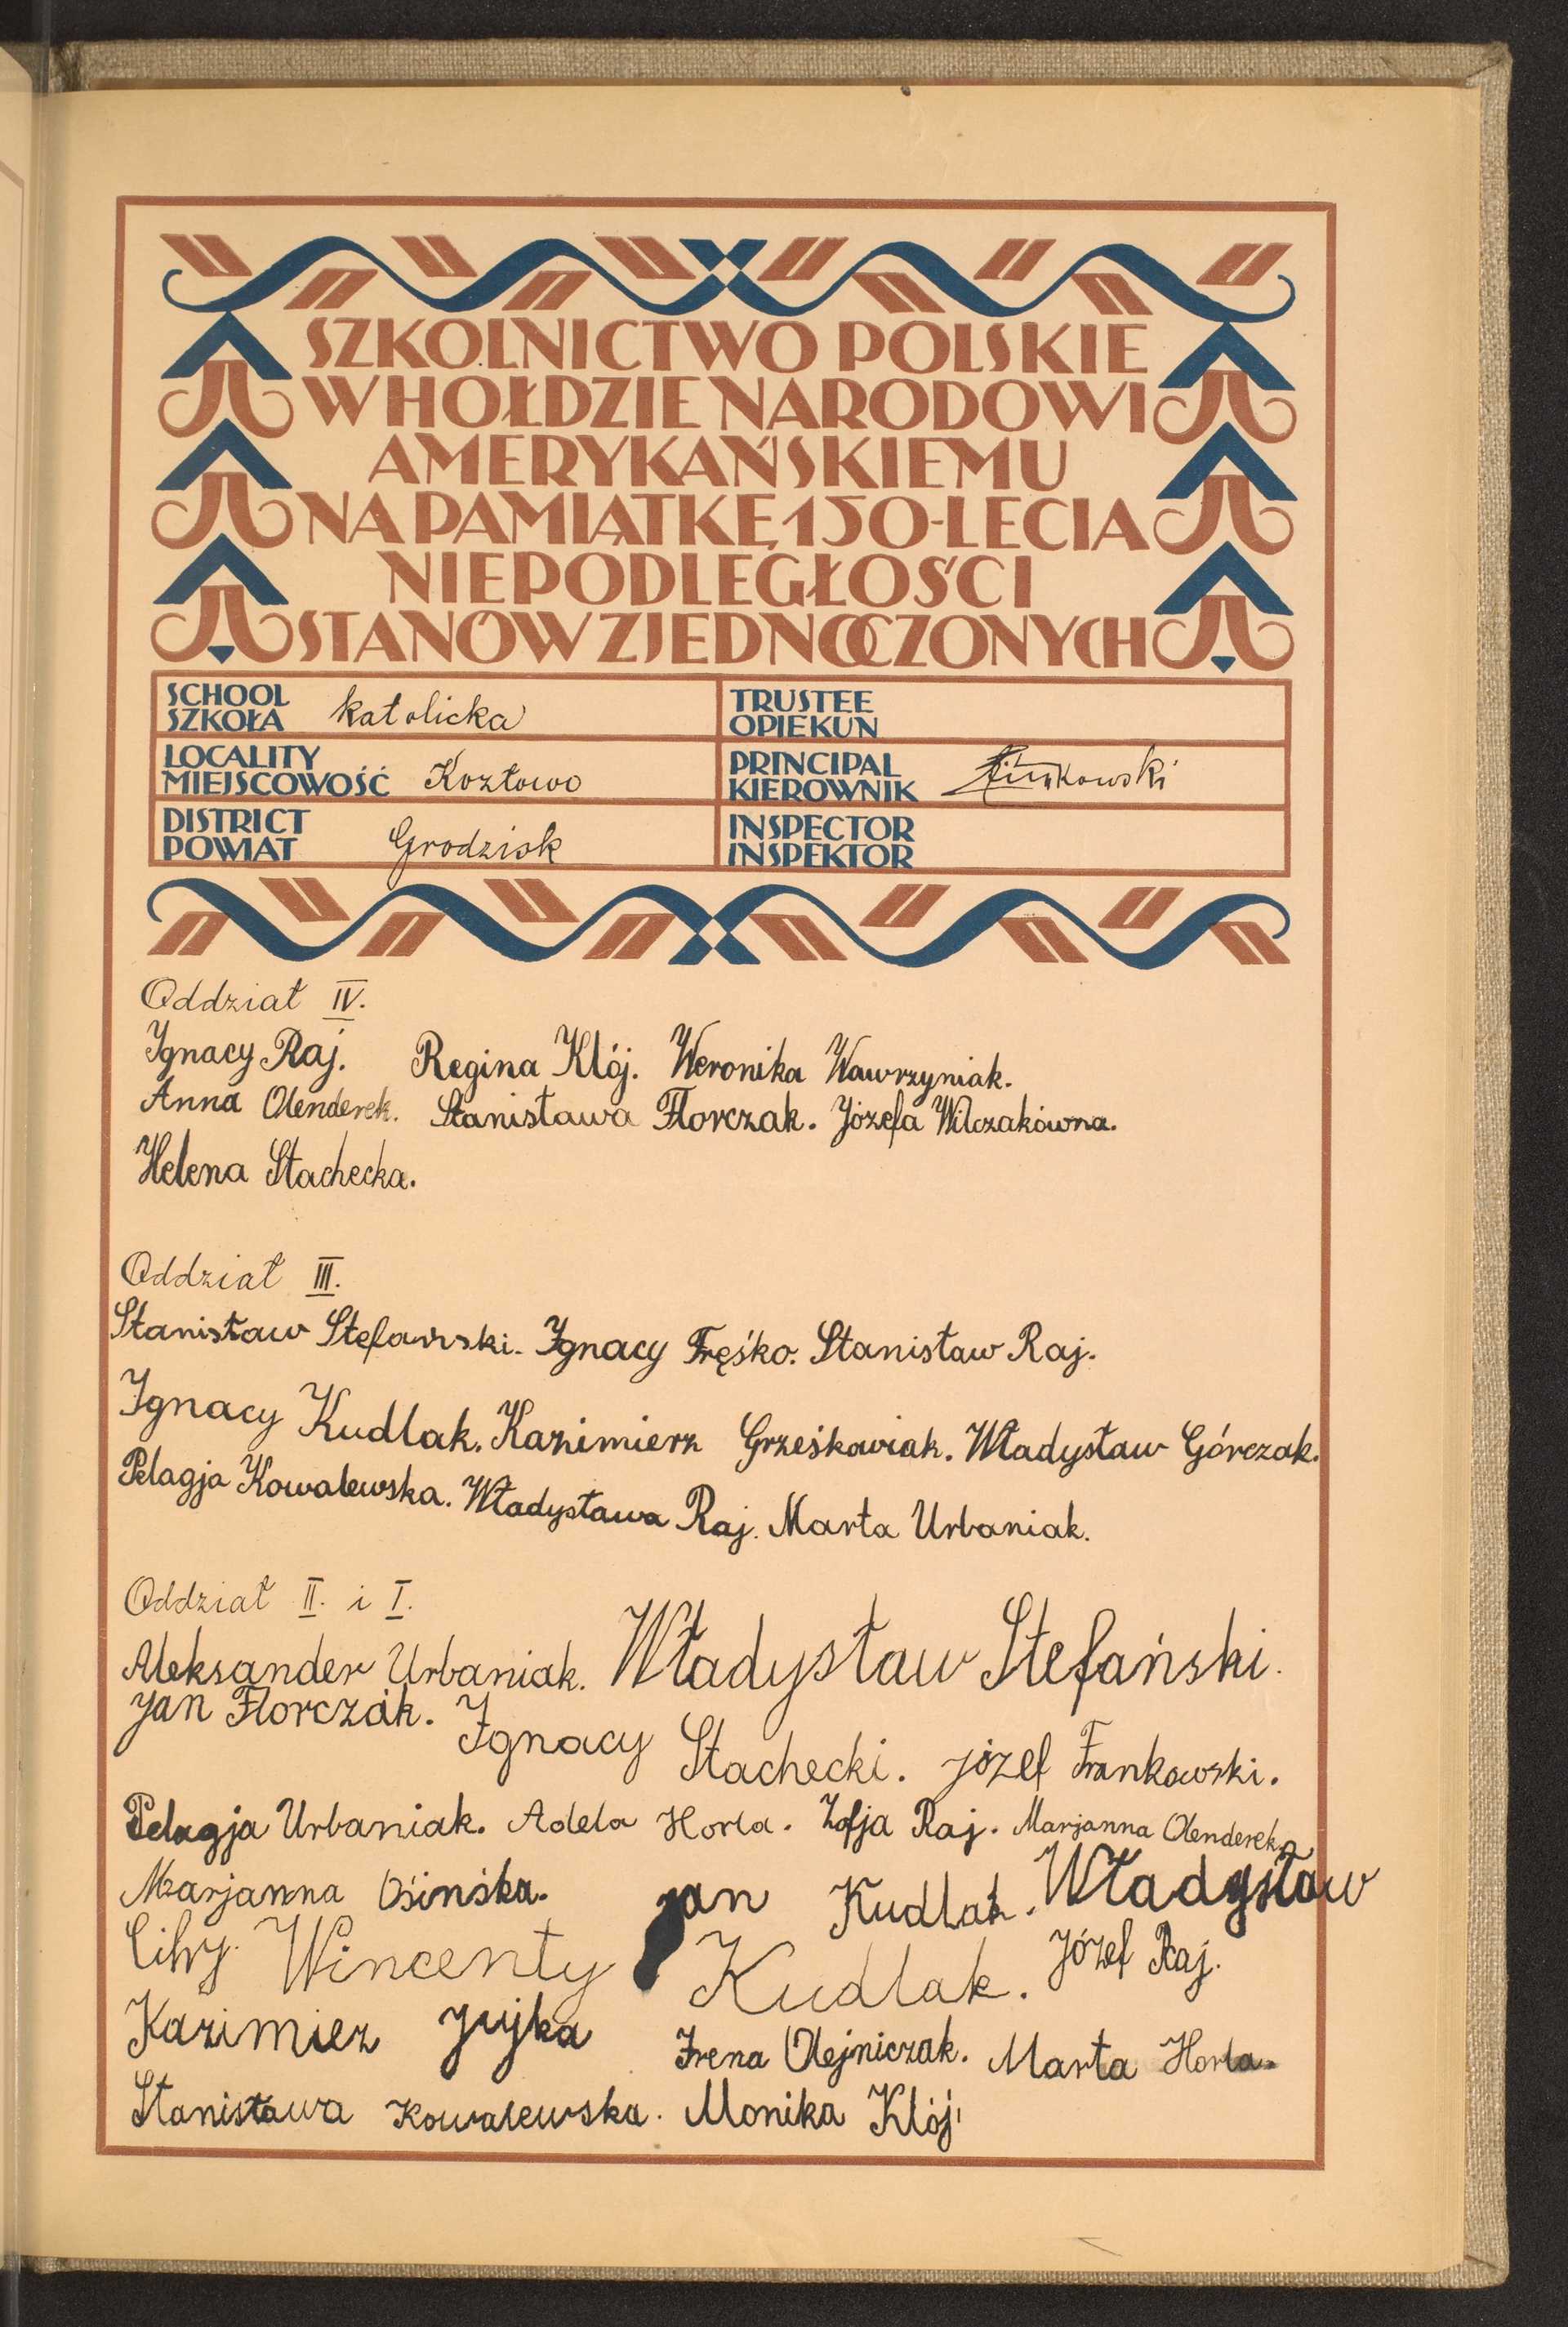 SZKOLNICTWO POLSKIE
W HOŁDZIE NARODOWI
AMERYKAŃSKIEMU
NA PAMIĄTKĘ 150-LECIA
NIEPODLEGŁOŚCI
STANÓW ZJEDNOCZONYCH
SCHOOL
SZKOŁA katolicka
TRUSTEE
OPIEKUN
LOCALITY
MIEJSCOWOŚĆ Kozłowo
PRINCIPAL
KIEROWNIK
DISTRICT
POWIAT Grodzisk
INSPECTOR
INSPEKTOR
Oddział IV.
Ignacy Raj. Regina Klój. Weronika Wawrzyniak.
Anna Olenderek. Stanisława Florczak. Józefa Wilczakówna.
Helena Stachecka.
Oddział III.
Stanisław Stefański. Ignacy Fręśko. Stanisław Raj.
Ignacy Kudlak. Kazimierz Grześkowiak. Władysław Górczak.
Pelagja Kowalewska. Władysława Raj. Marta Urbaniak.
Oddział II. i I.
Aleksander Urbaniak. Władysław Stefański.
Jan Florczak. Ignacy Stachecki. Józef Frankowski.
Pelagja Urbaniak. Adela Horla. Zofja Raj. Marjanna Olenderek.
Marjanna Ośinśka. Jan Kudlak. Władysław
Wincenty Kudlak. Józef Raj.
Kazimierz Jujka Irena Olejniczak. Marta Horla.
Stanisława Kowalewska. Monika Klój.